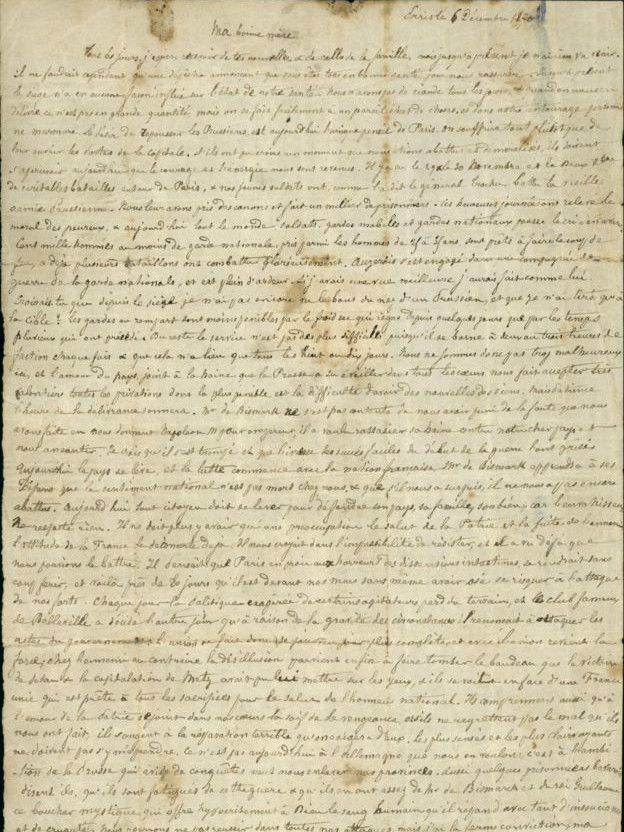 6 Décembre 1870
Ma bonne mère
Tous les jours, j'espère recevoir de tes nouvelles, & de celles de la famille, mais jusqu'à présent je n'ai rien vu venir.
Il ne faudrait cependant qu'une dépêche annonçant que vous êtes tous en bonne santé pour nous rassurer. Jusqu'à présent
le siège n'a en aucune façon influé sur l'état de notre santé. Nous avons de la viande tous les jours, & quand on nous en
délivre ce n'est pas en grande quantité mais on se fait facilement à un pareil état de choses, et dans notre entourage personne
ne murmure. Le désir de repousser les Prussiens, est aujourd'hui l'unique pensée de Paris. On souffrira tout plutôt que de
leur ouvrir les portes de la capitale. S'ils ont pu croire un moment que nous étions abattus et démoralisés, ils doivent
s'apercevoir aujourd'hui que le courage et l'énergie nous sont revenus. Il y a eu le 29 le 30 Novembre et le deux Xbre
de véritables batailles autour de Paris, & nos jeunes soldats ont, comme l'a dit le général Trochu battu la vieille
armée Prussienne. Nous leur avons pris des canons et fait un millier de prisonniers. Ces heureuses journées ont relevé le
moral des peureux, & aujourd'hui tout le monde soldats, gardes mobiles et gardes nationaux pousse le cri en avant.
Cent mille hommes au moins de garde nationale, pris parmi les hommes de 25 à 35 ans sont prêts à faire le coup de
feu, & déjà plusieurs bataillons ont combattu glorieusement. s'est engagé dans une compagnie de
guerre de la garde nationale, et est plein d'ardeur. Si j'avais une vue meilleure j'aurais fait comme lui
Croirais tu que depuis le siège je n'ai pas encore vu le bout du nez d'un Prussien, et que je n'ai tiré qu'à
la cible! Les gardes au rempart sont moins pénibles par le froid sec qui règne depuis quelques jours que par les temps
pluvieux qui ont précédé. Du reste le service n'est pas des plus difficiles puisqu'il se borne à deux ou trois heures de
faction chaque fois & que cela n'a lieu que tous les huit ou dix jours. Nous ne sommes donc pas trop malheureux
ici, et l'amour du pays, joint à la haine que la Prusse a su éveiller dans tous les cœurs nous fait accepter très
volontiers toutes les privations dont la plus pénible est la difficulté d'avoir des nouvelles des siens. Mais patience
l'heure de la délivrance sonnera. Mr de Bismark ne s'est pas contenté de nous avoir puni de la faute que nous
avons faite en nous donnant Napoléon III pour empereur, il a voulu rassasier sa haine contre notre cher pays et
nous anéantir. Je crois qu'il s'est trompé et que l'ivresse des succès faciles du début de la guerre l'ont grisé
Aujourd'hui le pays se lève, et la lutte commence avec la nation française. Mr de Bismark apprendra à ses
dépens que le sentiment national n'est pas mort chez nous, & que s'il nous a surpris, il ne nous a pas encore
abattus. Aujourd'hui tout citoyen doit se lever pour défendre son pays, sa famille, son bien, car l'ennemi
ne respecte rien. Il ne doit plus y avoir qu'une préoccupation le salut de la Patrie et la fuite de l'ennemi
L'attitude de la France le démonte déjà. Il nous croyait dans l'impossibilité de résister, et il a vu déjà que
nous pouvions le battre. Il pensait que Paris en proie aux horreurs des dissensions intestines, se rendrait sans
coup férir, et voilà près de 80 jours qu'il est devant nos murs sans même avoir osé se risquer à l'attaque
de nos forts. Chaque jour la politique exagérée de certains agitateurs perd du terrain, et le club fameux
de Belleville a décidé l'autre jour qu'à raison de la gravité des circonstances il renonçait à attaquer les
actes du gouvernement. L'union se fait donc de jour en jour plus complète, et avec l'union renaît la
force, chez l'ennemi au contraire la désillusion parvient enfin à faire tomber le bandeau que la victoire
de Sedan & la capitulation de Metz, avait pu lui mettre sur les yeux, & il se voit en face d'une France
unie qui est prête à tous les sacrifices pour le salut de l'honneur national. Ils comprennent aussi qu'à
l'amour de la patrie se joint dans nos cœurs la soif de la vengeance, et s'ils ne regrettent pas le mal qu'ils
nous ont fait, ils songent à la réparation terrible qu'on exigera d'eux. Les plus sensés et les plus clairvoyants
ne doivent pas s'y méprendre. Ce n'est pas aujourd'hui à l'Allemagne que nous en voulons, c'est à l'ambi
tion de la Prusse qui avide de conquêtes veut nous enlever nos provinces. Aussi quelques prisonniers bavarois
disent ils, qu'ils sont fatigués de cette guerre, & qu'ils en ont assez de Mr de Bismark et du roi Guillaume
ce boucher mystique, qui offre hypocritement à Dieu le sang humain qu'il répand avec tant d'insouciance
et de cruauté. Nous pouvons ne pas réussir dans toutes nos attaques mais j'ai la ferme conviction, ma